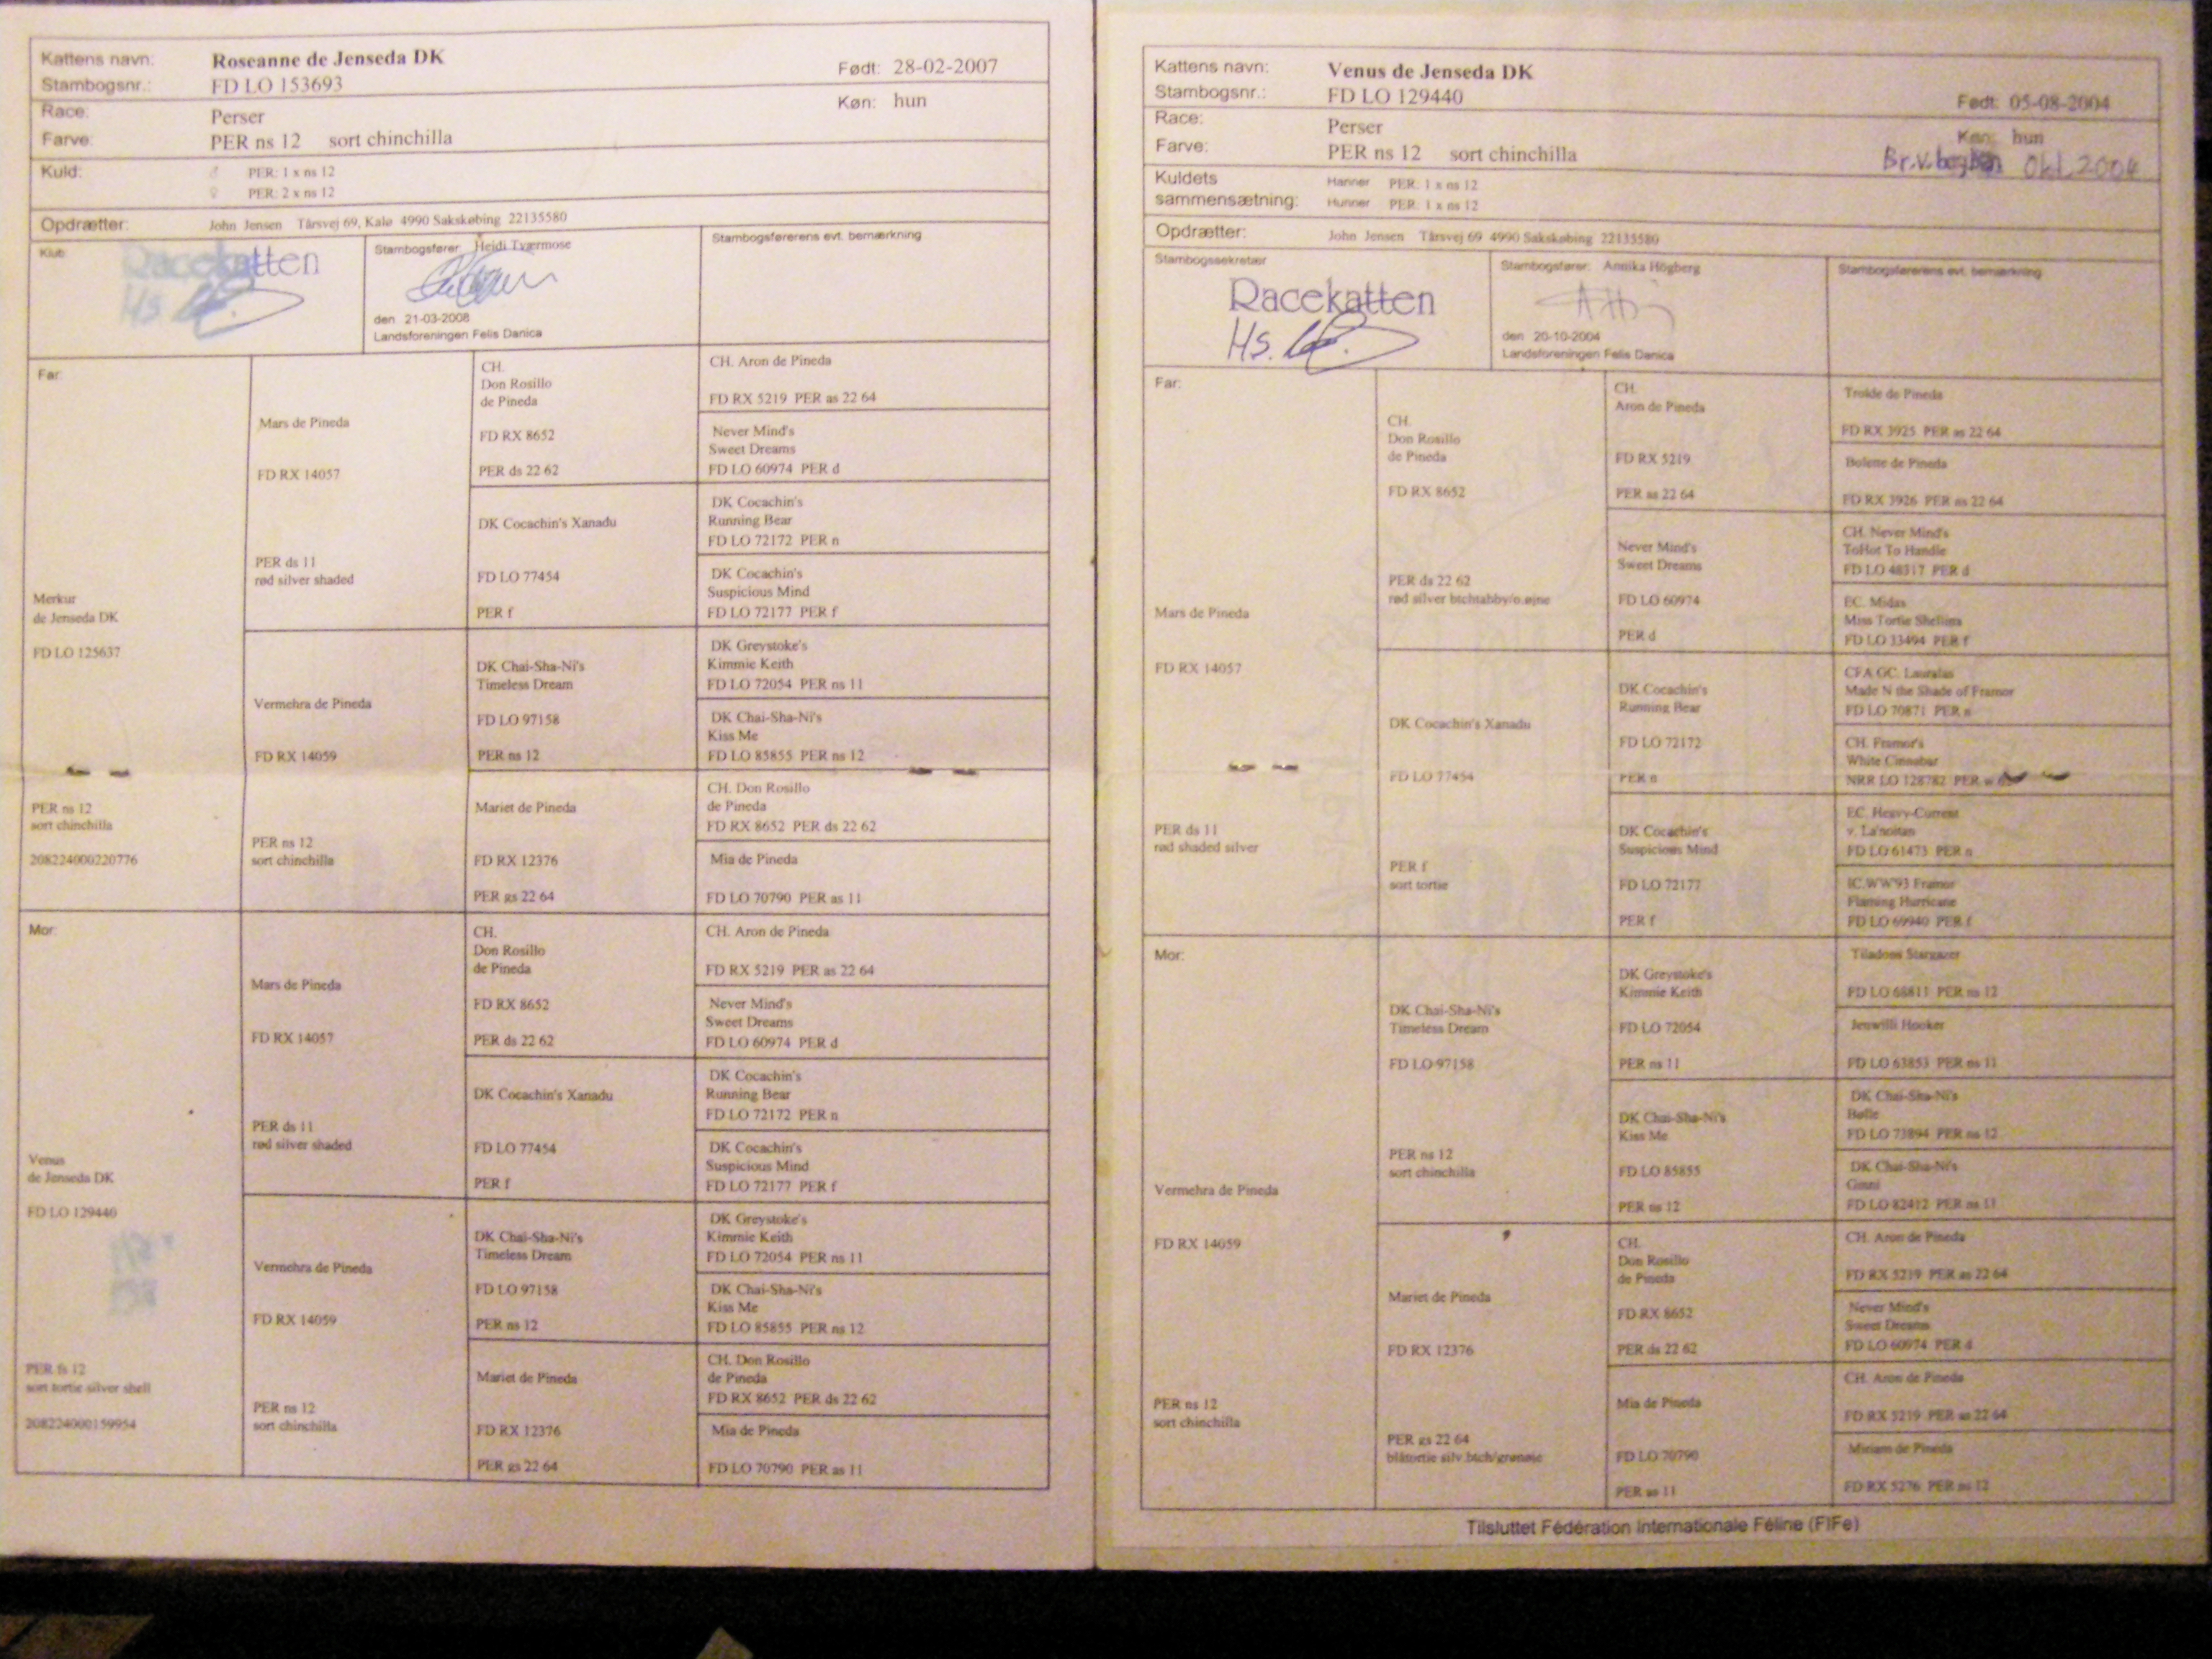 Kattens navn: Roseanne de Jenseda DK
Født: 28-02-2007
Stambogsnr.: FD LO 153693
Køn: hun
Race: Perser
Farve: PER ns 12 sort chinchilla
Kuld: ♂ PER: 1 x ns 12
♀ PER: 2 x ns 12
Opdrætter: John Jensen Tårsvej 69, Kalø 4990 Sakskøbing 22135580
Klub:
Racekatten
Hs.
Stambogsfører Heidi Tværmose
den 21-03-2008
Landsforeningen Felis Danica
Stambogsførerens evt. bemærkning
Far:
Merkur
de Jenseda DK
FD LO 125637
PER ns 12
sort chinchilla
208224000220776
Mars de Pineda
FD RX 14057
PER ds 11
rød silver shaded
Vermehra de Pineda
FD RX 14059
PER ns 12
sort chinchilla
CH.
Don Rosillo
de Pineda
FD RX 8652
PER ds 22 62
DK Cocachin's Xanadu
FD LO 77454
PER f
DK Chai-Sha-Ni's
Timeless Dream
FD LO 97158
PER ns 12
Mariet de Pineda
FD RX 12376
PER gs 22 64
CH. Aron de Pineda
FD RX 5219 PER as 22 64
Never Mind's
Sweet Dreams
FD LO 60974 PER d
DK Cocachin's
Running Bear
FD LO 72172 PER n
DK Cocachin's
Suspicious Mind
FD LO 72177 PER f
DK Greystoke's
Kimmie Keith
FD LO 72054 PER ns 11
DK Chai-Sha-Ni's
Kiss Me
FD LO 85855 PER ns 12
CH. Don Rosillo
de Pineda
FD RX 8652 PER ds 22 62
Mia de Pineda
FD LO 70790 PER as 11
Mor:
Venus
de Jenseda DK
FD LO 129440
PER fs 12
sort tortie silver shell
208224000159954
Mars de Pineda
FD RX 14057
PER ds 11
rød silver shaded
Vermehra de Pineda
FD RX 14059
PER ns 12
sort chinchilla
CH.
Don Rosillo
de Pineda
FD RX 8652
PER ds 22 62
DK Cocachin's Xanadu
FD LO 77454
PER f
DK Chai-Sha-Ni's
Timeless Dream
FD LO 97158
PER ns 12
Mariet de Pineda
FD RX 12376
PER gs 22 64
CH. Aron de Pineda
FD RX 5219 PER as 22 64
Never Mind's
Sweet Dreams
FD LO 60974 PER d
DK Cocachin's
Running Bear
FD LO 72172 PER n
DK Cocachin's
Suspicious Mind
FD LO 72177 PER f
DK Greystoke's
Kimmie Keith
FD LO 72054 PER ns 11
DK Chai-Sha-Ni's
Kiss Me
FD LO 85855 PER ns 12
CH. Don Rosillo
de Pineda
FD RX 8652 PER ds 22 62
Mia de Pineda
FD LO 70790 PER as 11
Kattens navn: Venus de Jenseda DK
Stambogsnr.: FD LO 129440
Født: 05-08-2004
Race: Perser
Køn: hun
Farve: PER ns 12 sort chinchilla
Br.v. Okt 2004
Kuldets sammensætning:
Hanner PER: 1 x ns 12
Hunner PER: 1 x ns 12
Opdrætter: John Jensen Tårsvej 69 4990 Sakskøbing 22135580
Stambogssekretær
Racekatten
Hs.
Stambogsfører: Annika Högberg
den 20-10-2004
Landsforeningen Felis Danica
Stambogsførerens evt. bemærkning
Far:
Mars de Pineda
FD RX 14057
PER ds 11
rød shaded silver
CH.
Don Rosillo
de Pineda
FD RX 8652
PER ds 22 62
rød silver btchtabby/o.øjne
DK Cocachin's Xanadu
FD LO 77454
PER f
sort tortie
CH.
Aron de Pineda
FD RX 5219
PER as 22 64
Never Mind's
Sweet Dreams
FD LO 60974
PER d
DK Cocachin's
Running Bear
FD LO 72172
PER n
DK Cocachin's
Suspicious Mind
FD LO 72177
PER f
Trolde de Pineda
FD RX 3925 PER as 22 64
Bolette de Pineda
FD RX 3926 PER as 22 64
CH. Never Mind's
ToHot To Handle
FD LO 48317 PER d
EC. Midas
Miss Tortie Shellina
FD LO 33494 PER f
CFA GC. Lauralas
Made N the Shade of Framor
FD LO 70871 PER n
CH. Framor's
White Cinnabar
NRR LO 128782 PER w
EC. Heavy-Current
v. La'noitan
FD LO 61473 PER n
IC.WW'93 Framor
Flaming Hurricane
FD LO 69940 PER f
Mor:
Vermehra de Pineda
FD RX 14059
PER ns 12
sort chinchilla
DK Chai-Sha-Ni's
Timeless Dream
FD LO 97158
PER ns 12
sort chinchilla
Mariet de Pineda
FD RX 12376
PER gs 22 64
blåtortie silv.btch/grønøje
DK Greystoke's
Kimmie Keith
FD LO 72054
PER ns 11
DK Chai-Sha-Ni's
Kiss Me
FD LO 85855
PER ns 12
CH.
Don Rosillo
de Pineda
FD RX 8652
PER ds 22 62
Mia de Pineda
FD LO 70790
PER as 11
Tiladons Stargazer
FD LO 68811 PER ns 12
Jenwilli Hooker
FD LO 63853 PER ns 11
DK Chai-Sha-Ni's
FD LO 73894 PER ns 12
DK Chai-Sha-Ni's
FD LO 82412 PER ns 11
CH. Aron de Pineda
FD RX 5219 PER as 22 64
Never Mind's
Sweet Dreams
FD LO 60974 PER d
CH. Aron de Pineda
FD RX 5219 PER as 22 64
Miriam de Pineda
FD RX 5276 PER ns 12
Tilsluttet Fédération Internationale Féline (FIFe)